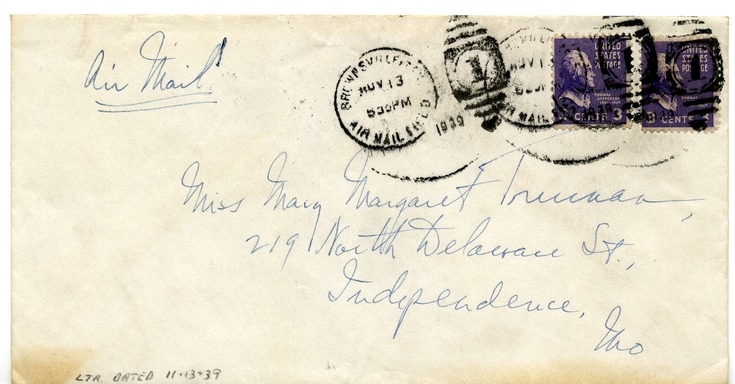 Air Mail
BROWNSVILLE, TEX.
NOV 13
530PM
AIR MAIL FIELD
1939
1
NOV 13
AIR MAIL
UNITED
STATES
POSTAGE
THOMAS
JEFFERSON
CENTS 3
1
UNITED
STATES
POSTAGE
3 CENTS 3
Miss Mary Margaret Truman,
219 North Delaware St.,
Independence,
Mo
LTR. DATED 11-13-39